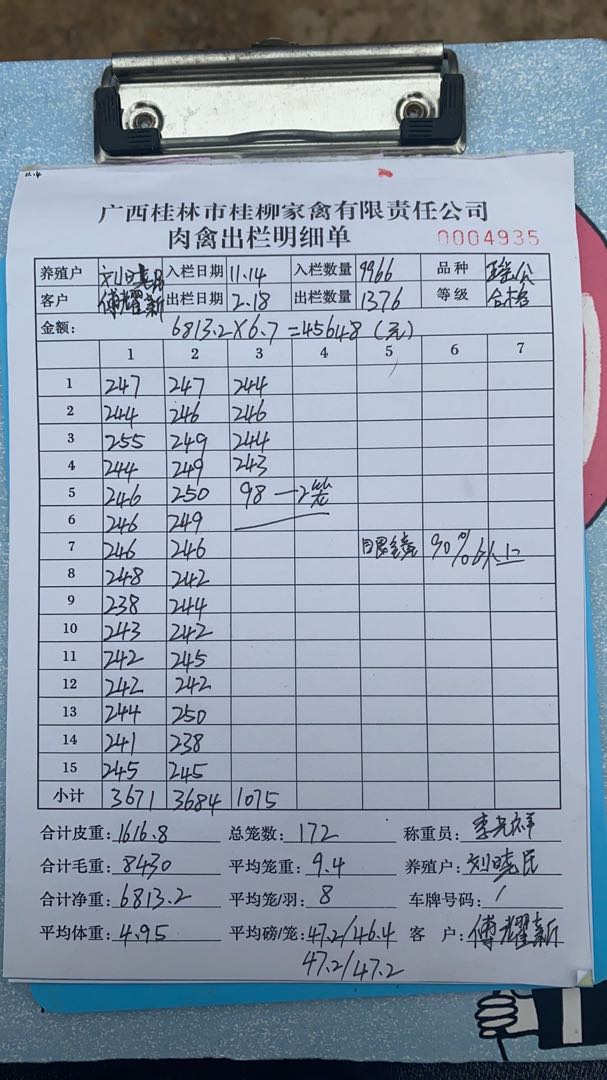 11.14
广西桂林市桂柳家禽有限责任公司
肉禽出栏明细单 0004935
养殖户 刘晓民 入栏日期 11.14 入栏数量 9966 品种 瑶公
客户 傅耀新 出栏日期 2.18 出栏数量 1376 等级 合格
金额: 6813.2×6.7=45648(元)
1 2 3 4 5 6 7
1 247 247 244
2 244 246 246
3 255 249 244
4 244 249 243
5 246 250 98 —2笼
6 246 249
7 246 246 90%以上
8 248 242
9 238 244
10 243 242
11 242 245
12 242 242
13 244 250
14 241 238
15 245 245
小计 3671 3684 1075
合计皮重: 1616.8 总笼数: 172 称重员: 李光祥
合计毛重: 8430 平均笼重: 9.4 养殖户: 刘晓民
合计净重: 6813.2 平均笼/羽: 8 车牌号码: /
平均体重: 4.95 平均磅/笼: 47.2/46.4 客 户: 傅耀新
47.2/47.2